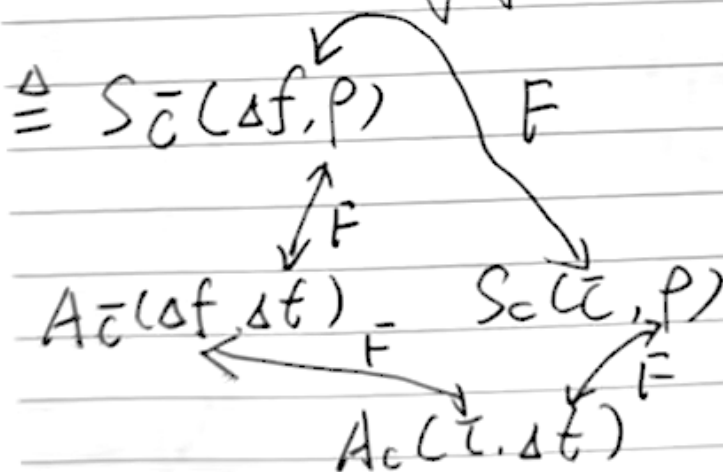 ≜ S_c̄(Δf, ρ)
F
F
A_c̄(Δf, Δt) S_c(τ, ρ)
F
F
A_c(τ, Δt)